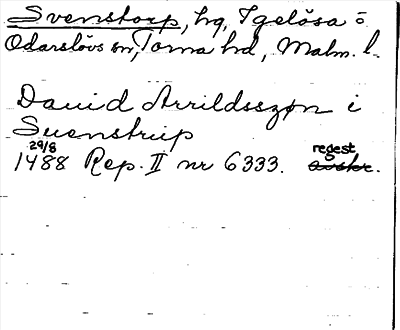 Svenstorp, hg, Igelösa o
Odarslövs sn, Torna hd, Malm. l.
David Arrildsszøn i
Suenstrup
29/8
1488 Rep. II nr 6333. regest avskr.